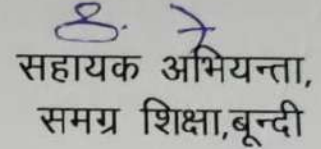 सहायक अभियन्ता,
समग्र शिक्षा,बून्दी